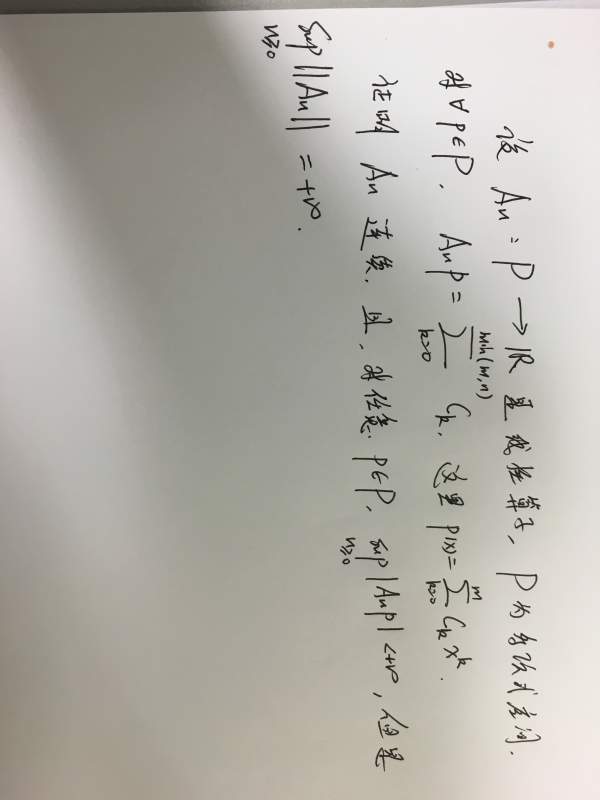 设 Aₙ : P → ℝ 是线性算子, P 为多项式空间.
对 ∀ p∈P, Aₙp = ∑_{k=0}^{min(m,n)} Cₖ, 这里 p(x) = ∑_{k=0}^{m} Cₖ xᵏ.
证明 Aₙ 连续, 且, 对任意 p∈P, sup_{n≥0} |Aₙp| < +∞, 但是
sup_{n≥0} ||Aₙ|| = +∞.